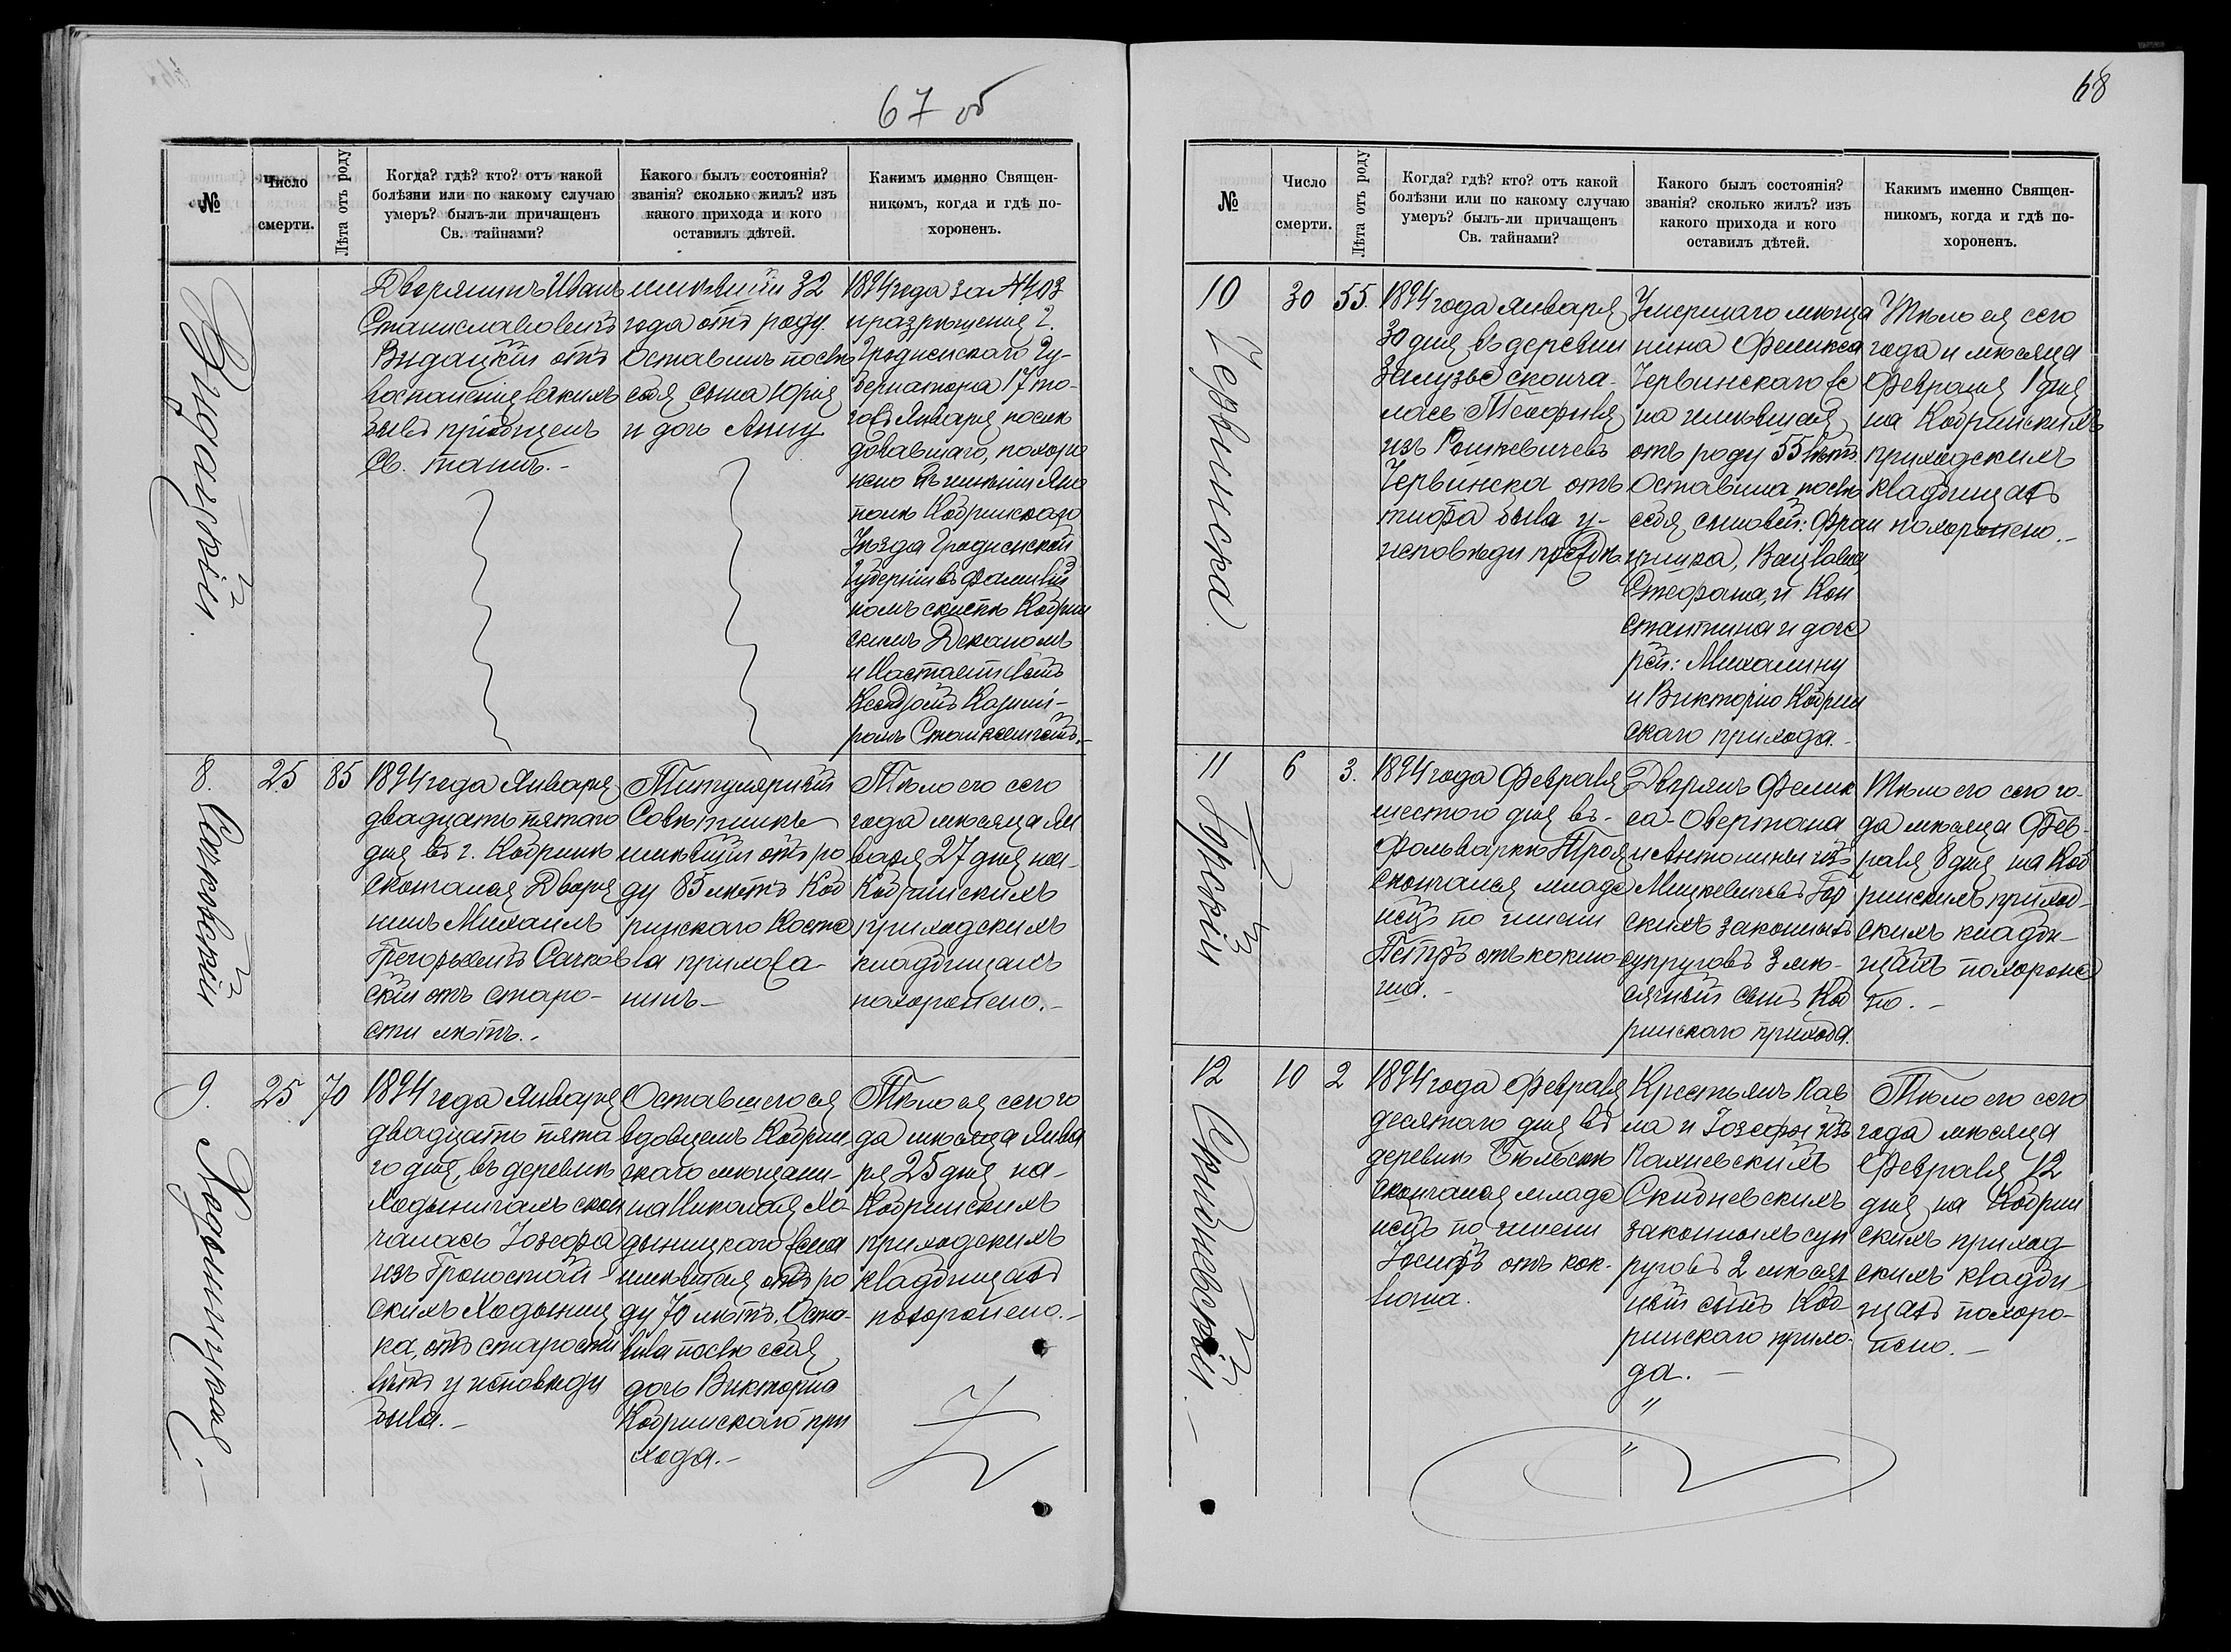 67 об
№
Число
смерти.
Лѣта отъ роду
Когда? гдѣ? кто? отъ какой
болѣзни или по какому случаю
умеръ? былъ-ли причащенъ
Св. тайнами?
Какого былъ состоянія?
званія? сколько жилъ? изъ
какого прихода и кого
оставилъ дѣтей.
Какимъ именно Священ-
никомъ, когда и гдѣ по-
хороненъ.
Видацкій
Дворянинъ Иванъ
Станиславовичъ
Видацкій отъ
воспаленія
былъ пріобщенъ
Св. таинъ.-
имѣвшій 32
года отъ роду.
Оставилъ послѣ
себя сына Юрія
и дочь Анну
1894 года за № 403
и разрѣшенія г.
Гродненскаго Гу-
бернатора 17 то-
го Января послѣ
довавшаго, похоро
нено въ имѣніи Яно
полѣ Кобринскаго
Уѣзда Гродненской
Губерніи въ фамилій
номъ склепѣ Кобрин
скимъ Деканомъ
и Настоятелемъ
Ксендзомъ Казими-
ромъ
8.
Сачковскій
25
85
1894 года Января
двадцать пятаго
дня въ г. Кобринѣ
скончался Дворя
нинъ Михаилъ
Григорьевичъ Сачков
скій отъ старо-
сти лѣтъ.-
Титулярный
Совѣтникъ
имѣвшій отъ ро
ду 85 лѣтъ Коб
ринскаго Косте
ла прихожа-
нинъ-
Тѣло его сего
года мѣсяца Ян
варя 27 дня на
Кобринскимъ
приходскимъ
кладбищахъ
похоронено.-
9.
Ходыницкая.-
25
70
1894 года Января
двадцать пята
го дня, въ деревнѣ
Ходыничахъ скон
чалась Іозефа
изъ Гроностай-
скихъ Ходыниц
ка, отъ старости
лѣтъ у исповѣди
была.-
Оставшегося
вдовцемъ Кобрин
скаго мѣщани-
на Николая Хо-
дыницкаго жена
имѣвшая отъ ро
ду 70 лѣтъ. Оста-
вила послѣ себя
дочь Викторію
Кобринскаго при
хода.-
Тѣло ея сего го
да мѣсяца Янва
ря 25 дня на-
Кобринскимъ
приходскимъ
кладбищахъ
похоронено.-
68
№
Число
смерти.
Лѣта отъ роду
Когда? гдѣ? кто? отъ какой
болѣзни или по какому случаю
умеръ? былъ-ли причащенъ
Св. тайнами?
Какого былъ состоянія?
званія? сколько жилъ? изъ
какого прихода и кого
оставилъ дѣтей.
Какимъ именно Священ-
никомъ, когда и гдѣ по-
хороненъ.
10
Червинска
30
55.
1894 года Января
30 дня въ деревни
Залузье сконча-
лась Теофиля
изъ Рошкевичевъ
Червинска отъ
тифа была у-
исповѣди
Умершаго мѣща
нина Феликса
Червинскаго же
на имѣвшая
отъ роду 55 лѣтъ.
Оставила послѣ
себя сыновей: Фран
цишка, Вацлава,
Стефана, и Кон
стантина и доче
рей: Михалину
и Викторію Кобрин
скаго прихода.-
Тѣло ея сего
года и мѣсяца
Февраля 1 дня
на Кобринскимъ
приходскимъ
кладбищахъ
похоронено.-
11
Горскій
6
3.
1894 года Февраля
шестого дня въ-
Фольваркѣ Троя
скончался младе
нецъ по имени
Петръ отъ коклю
ша.-
Дворянъ Фелик
са-
и Антонины изъ
Мицкевичевъ Гор
скихъ законныхъ
супруговъ 3 мѣ-
сячный сынъ Коб
ринскаго прихода.
Тѣло его сего го-
да мѣсяца Фев-
раля 8 дня на Коб
ринскимъ приход-
скимъ кладби-
щахъ похороне
но.-
12
Скибневскій.-
10
2
1894 года Февраля
десятого дня въ
деревнѣ
скончался младе
нецъ по имени
Іосифъ отъ кок-
люша.
Крестьянъ Пав
ла и Іозефы изъ
Скибневскихъ
законныхъ суп
руговъ 2 мѣсяч
ный сынъ Коб-
ринскаго прихо-
да.-
Тѣло его сего
года мѣсяца
Февраля 12
дня на Кобрин
скимъ приход
скимъ кладби
щахъ похоро-
нено.-